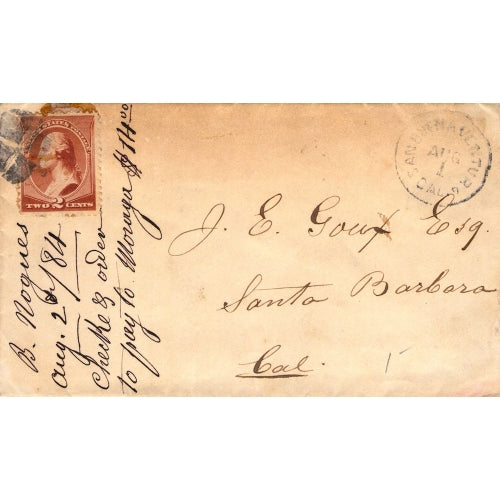 UNITED STATES POSTAGE
TWO 2 CENTS
SAN BUENAVENTURA
AUG
1
CAL.
J. E. Goux Esq.
Santa Barbara
Cal.
B. Nogues
Aug. 2d/84
Checke & order
to pay to Moraga $14.00